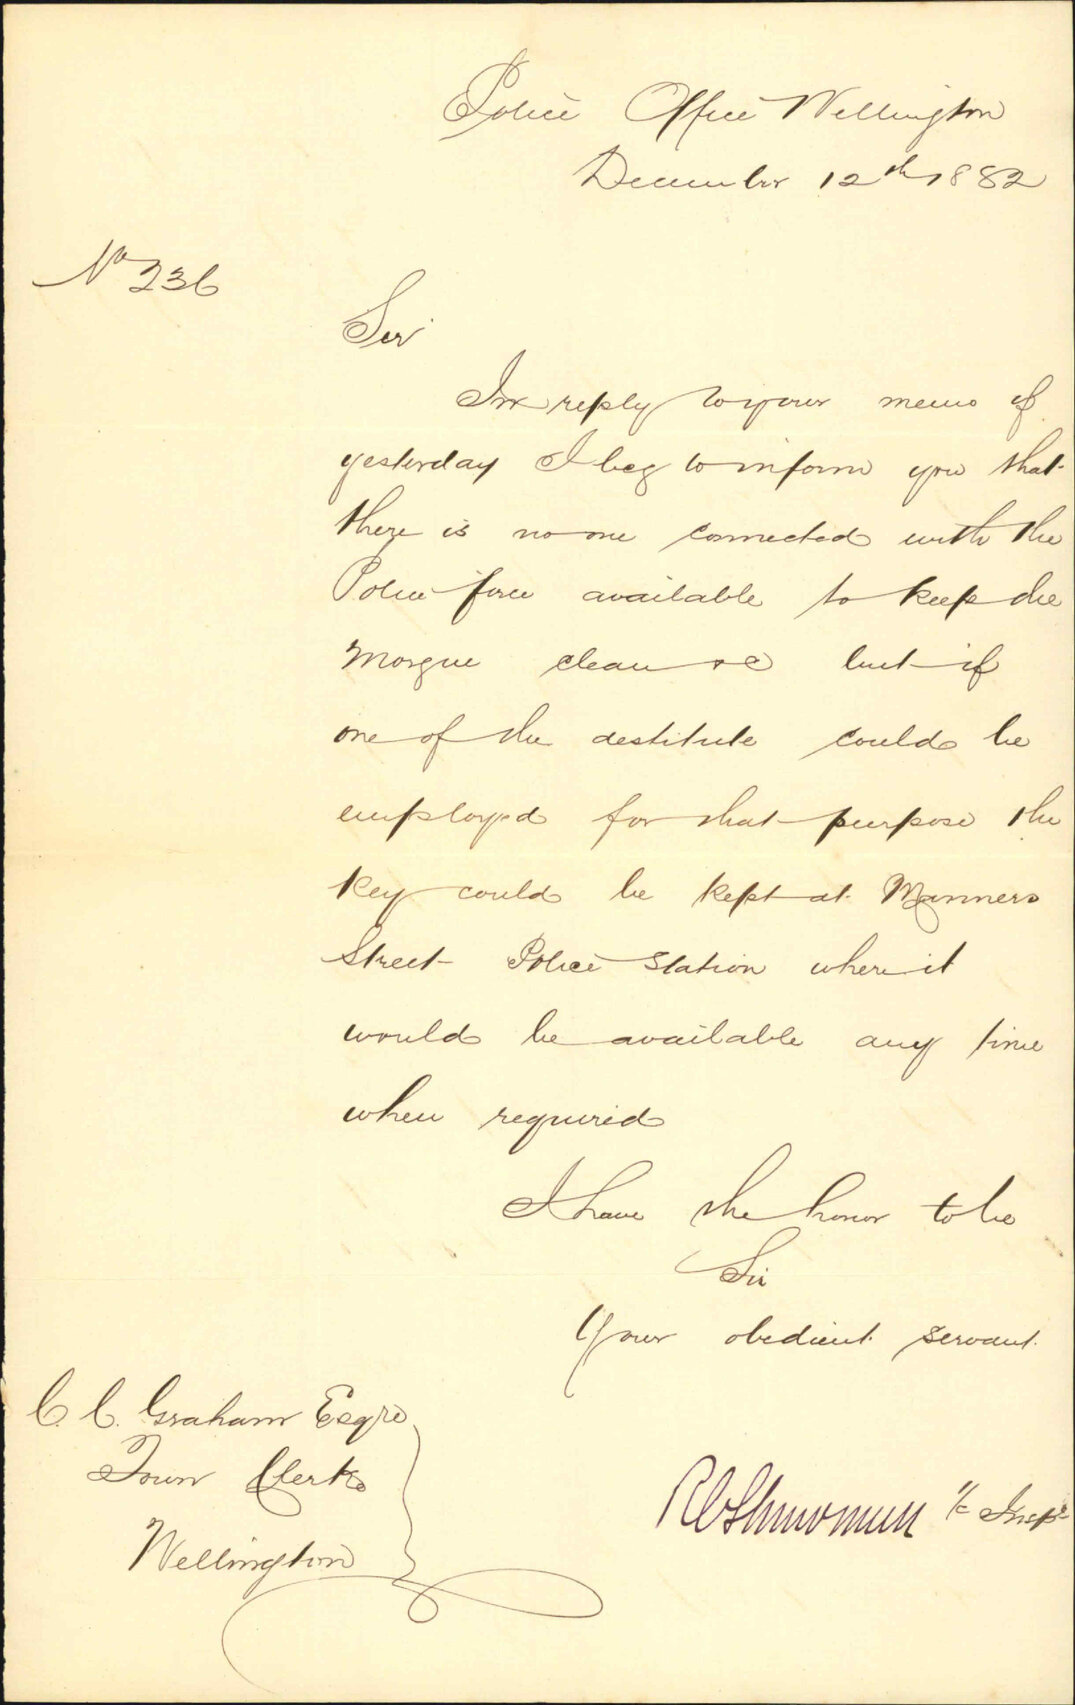 Police Office Wellington
December 12th 1882
No 236
Sir
In reply to your memo of
yesterday I beg to inform you that
there is no one connected with the
Police force available to keep the
Morgue clean &c but if
one of the destitute could be
employed for that purpose the
key could be kept at Manners
Street Police Station where it
would be available any time
when required
I have the honor to be
Sir
Your obedient servant
C. C. Graham Esqre
Town Clerk
Wellington
I/c Inspr